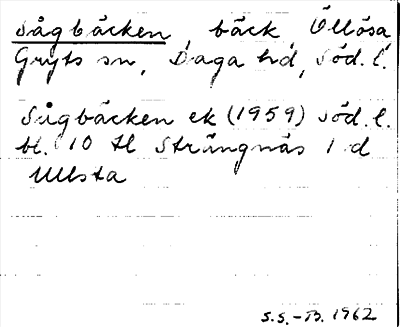 Sågbäcken, bäck, Öllösa,
Gryts sn, Daga hd, Söd. l.
Sågbäcken ek (1959) Söd. l.
bl. 10 tl Strängnäs 1 d
Ullsta
S.S.-B. 1962